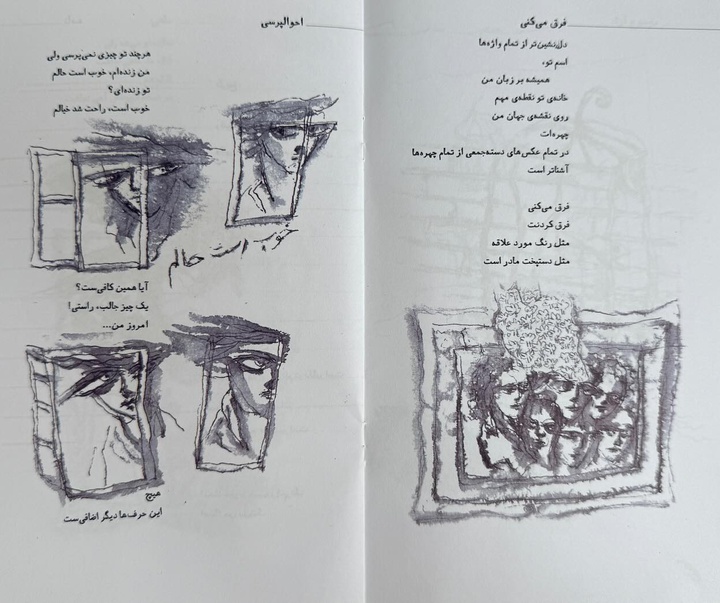 فرق می‌کنی
دل‌نشین‌تر از تمام واژه‌ها
اسم تو،
همیشه بر زبان من
خانه‌ی تو نقطه‌ی مهم
روی نقشه‌ی جهان من
چهره‌ات
در تمام عکس‌های دسته‌جمعی از تمام چهره‌ها
آشناتر است
فرق می‌کنی
فرق کردنت
مثل رنگ مورد علاقه
مثل دستپخت مادر است
احوالپرسی
هرچند تو چیزی نمی‌پرسی ولی
من زنده‌ام، خوب است حالم
تو زنده‌ای؟
خوب است، راحت شد خیالم
خوب است حالم
آیا همین کافی‌ست؟
یک چیز جالب، راستی!
امروز من...
هیچ
این حرف‌ها دیگر اضافی‌ست